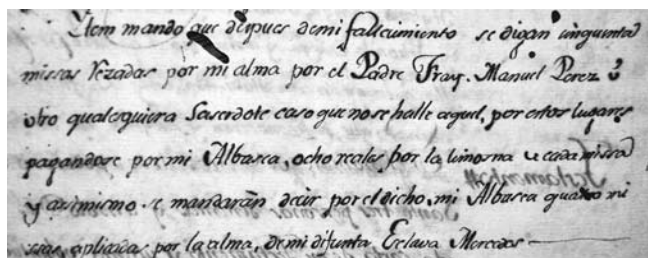 Ytem mando que despues de mi fallecimiento se digan sinquenta
missas rezadas por mi alma por el Padre Fray. Manuel Perez ú
otro qualesquiera Saserdote caso que no se halle aquel, por estos lugares
pagandose por mi Albasea, ocho reales por la limosna de cada missa
y asimismo se mandarán decir por el dicho, mi Albasea quatro mi
ssas aplicadas por la alma, de mi difunta Esclava Mercedes